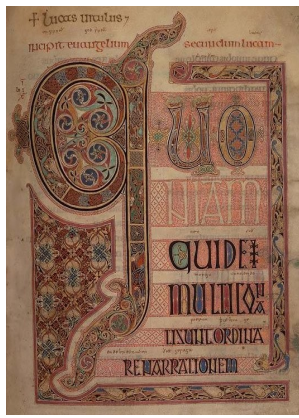 + lucas uitulus
incipit euangelium secundum lucam
QUO
NIAM
QUIDE
MULTI CO
NA
TI SUNT ORDINA
RE NARRATIONEM